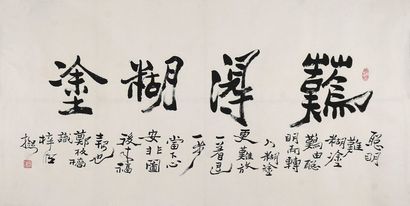 難得糊塗
聰明
難
糊塗
難由聰
明而轉
入糊塗
更難放
一著退
一步
當下心
安非圖
後來福
報也
鄭板橋
識